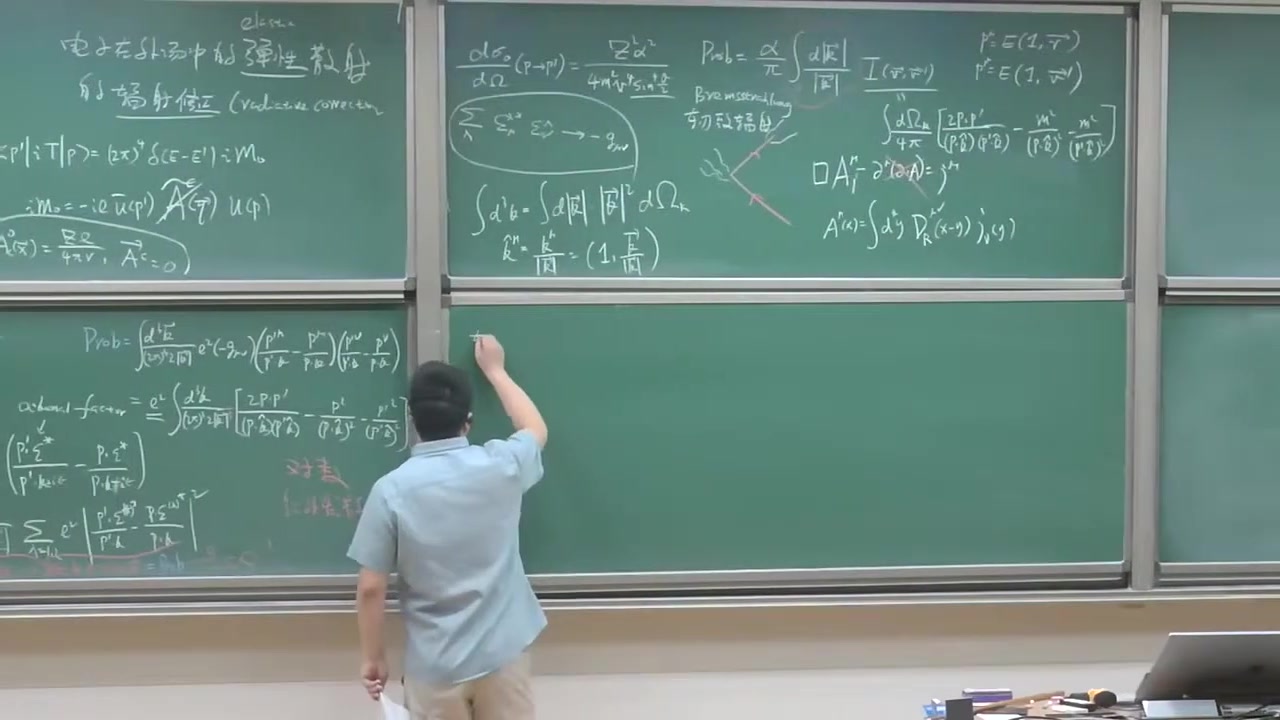 elastic
电子在外场中的弹性散射
的辐射修正 (radiative correction
<p'|iT|p> = (2π)⁴ δ(E-E') i M₀
i M₀ = -i e ū(p') A̸ᶜ(q⃗) u(p)
A⁰_c(x⃗) = Ze/4πr, A⃗ᶜ = 0
dσ₀/dΩ (p→p') = Z²α²/4m²v⁴ sin⁴ θ/2
Σ_λ ε^{*}_μ ε_ν → -g_{μν}
∫d³k = ∫d|k⃗| |k⃗|² dΩ_k
k̂^μ = k^μ/|k⃗| = (1, k⃗/|k⃗|)
Prob = α/π ∫ d|k⃗|/|k⃗| I(v⃗, v⃗')
Bremsstrahlung
轫致辐射
p^μ = E(1, v⃗)
p'^μ = E(1, v⃗')
∫ dΩ_k/4π [2p·p'/(p·k̂)(p'·k̂) - m²/(p·k̂)² - m²/(p'·k̂)²]
□A^μ - ∂^μ(∂·A) = j^μ
A^μ(x) = ∫d⁴y D_R^{μν}(x-y) j_ν(y)
Prob = ∫ d³k⃗/(2π)³2|k⃗| e² (-g_{μν}) (p'^μ/p'·k - p^μ/p·k)(p'^ν/p'·k - p^ν/p·k)
= e² ∫ d³k/(2π)³2|k⃗| [2p·p'/(p·k̂)(p'·k̂) - p²/(p·k̂)² - p'²/(p'·k̂)²]
(p'·ε*/p'·k+iε - p·ε*/p·k+iε)
Σ_{λ=1,2} e² |p'·ε*/p'·k - p·ε*/p·k|²